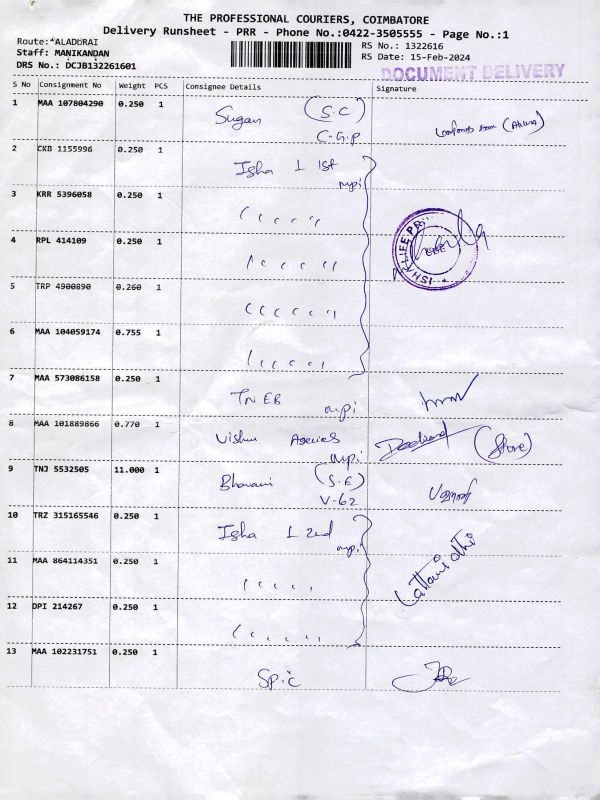 THE PROFESSIONAL COURIERS, COIMBATORE
Delivery Runsheet - PRR - Phone No.:0422-3505555 - Page No.:1
Route:*ALADURAI
Staff: MANIKANDAN
DRS No.: DCJB132261601
RS No.: 1322616
RS Date: 15-Feb-2024
DOCUMENT DELIVERY
S No Consignment No Weight PCS Consignee Details Signature
1 MAA 107804290 0.250 1 Sugan (S.C)
C-G.P
2 CKB 1155996 0.250 1 Isha L 1st
mpi
3 KRR 5396058 0.250 1 ( ( ( ( ( (
4 RPL 414109 0.250 1 ( ( ( ( ( (
5 TRP 4900890 0.260 1 ( ( ( ( ( (
6 MAA 104059174 0.755 1 ( ( ( ( ( (
7 MAA 573086158 0.250 1 TNEB mpi
8 MAA 101889866 0.770 1 Vishnu Agencies (Store)
mpi
9 TNJ 5532505 11.000 1 Bhavani (S.E)
V-62
10 TRZ 315165546 0.250 1 Isha L 2nd
mpi
11 MAA 864114351 0.250 1 ( ( ( ( (
12 DPI 214267 0.250 1 ( ( ( ( ( (
13 MAA 102231751 0.250 1 Spic